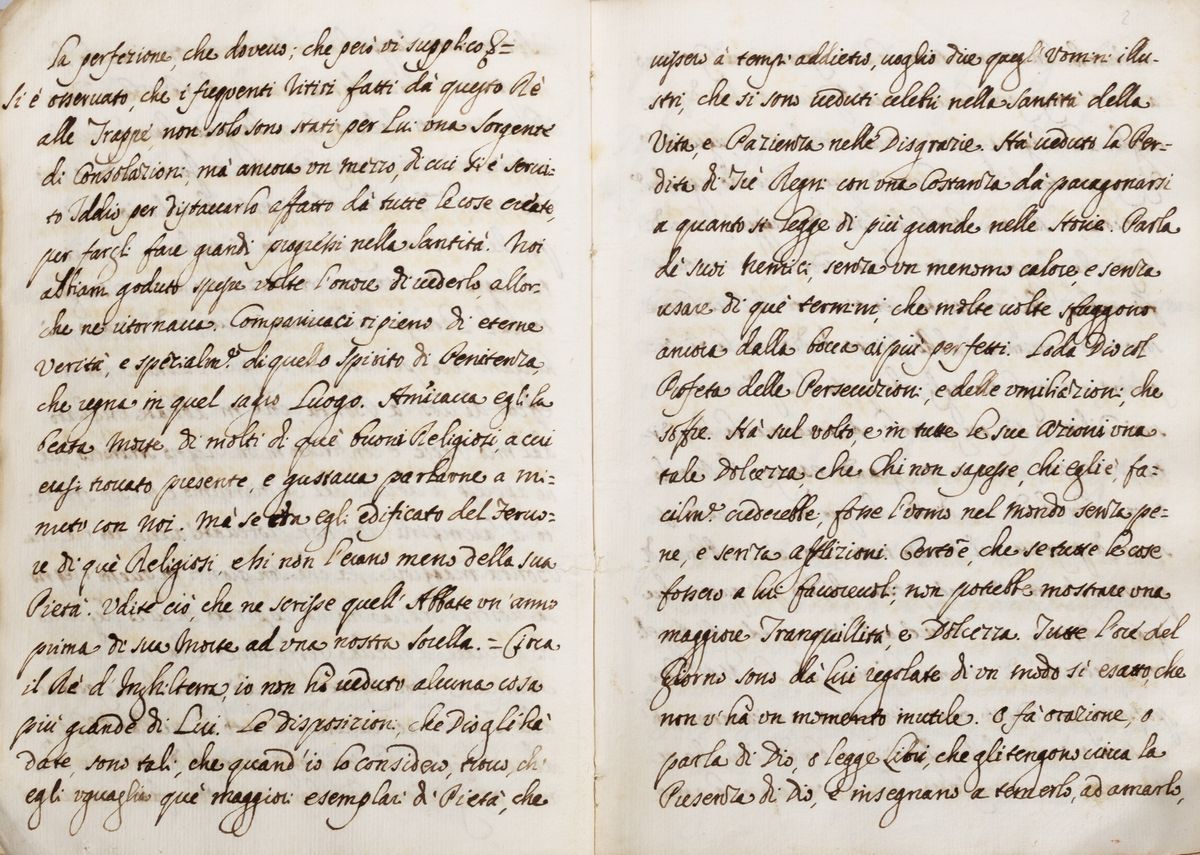 La perfezione, che dovevo; che però vi supplico &=
Si è osservato, che i frequenti ritiri fatti dà questo Rè
alle Trappe, non solo sono stati per Lui una Sorgente
di Consolazioni, mà ancora un mezzo, di cui si è servi-
to Iddio per distaccarlo affatto dà tutte le cose create,
per fargli fare grandi progressi nella Santità. Noi
abbiam goduto spesse volte l'onore di vederlo, allor-
che ne ritornava. Comparivaci ripieno di eterne
verità, e spezialm.e di quello spirito di Penitenza
che regna in quel sacro Luogo. Amirava egli la
beata Morte di molti di què buoni Religiosi, a cui
erasi trovato presente, e gustava parlarne a mi-
nuto con Noi. Mà se era egli edificato del Fervo-
re di què Religiosi, essi non l'erano meno della sua
Pietà. Udite ciò, che ne scrisse quell'Abbate un'anno
prima di sua Morte ad una nostra Sorella. = Circa
il Rè d'Inghilterra, io non hò veduto alcuna cosa
più grande di Lui. Le disposizioni, che Dio gli hà
date, sono tali, che quand'io lo considero, trovo, ch'
egli uguaglia què maggiori esemplari di Pietà, che
2
vissero à tempi addietro, voglio dire quegl'Uomini illu-
stri, che si sono veduti celebri nella Santità della
Vita, e Pazienza nelle Disgrazie. Hà veduto la Per-
dita di Trè Regni con una Costanza dà paragonarsi
a quanto si legge di più grande nelle Storie. Parla
dè suoi nemici, senza un menomo calore, e senza
usare di què termini, che molte volte sfuggono
ancora dalla bocca ai più perfetti. Loda Dio col
Profeta delle Persecuzioni, e delle umiliazioni, che
soffre. Hà sul volto, e in tutte le sue Azioni una
tale Dolcezza, che Chi non sapesse, chi egli è, fa-
cilm.e crederebbe, fosse l'uomo nel mondo senza pe-
ne, e senza afflizioni. Certo è, che se tutte le cose
fossero a lui favorevoli, non potrebbe mostrare una
maggiore Tranquillità, e Dolcezza. Tutte l'ore del
Giorno sono dà Lui regolate di un modo sì esatto, che
non v'hà un momento inutile. O, fà orazione, o
parla di Dio, o legge Libri, che gli tengono viva la
Presenza di Dio, e insegnano a temerlo, ad amarlo,